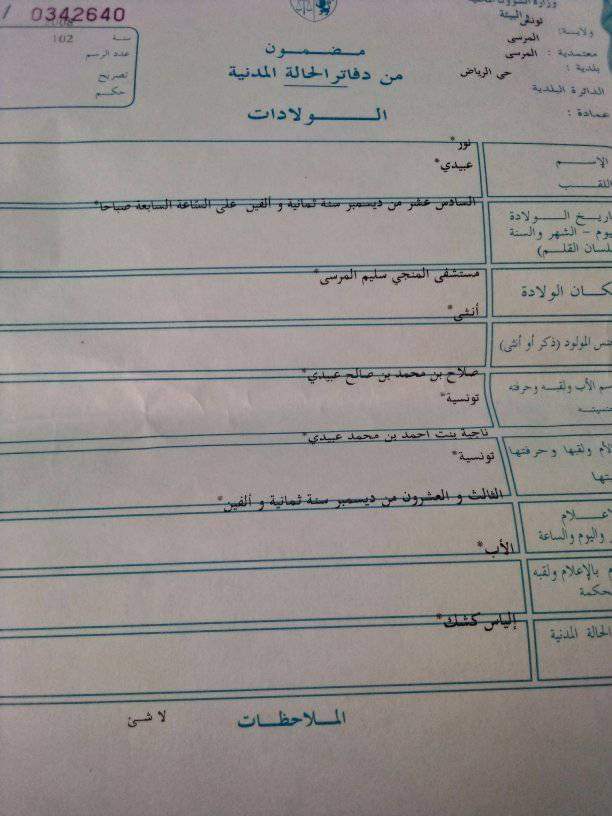 0342640 /
سنة 2008
102
عدد الرسم
تصريح
حكم
وزارة الشؤون المحلية
و البيئة
ولاية: تونس
معتمدية : المرسى
بلدية : المرسى
الدائرة البلدية حي الرياض
عمادة :
مضمون
من دفاتر الحالة المدنية
الولادات
الاسم نور*
اللقب عبيدي*
تاريخ الولادة السادس عشر من ديسمبر سنة ثمانية و ألفين على الساعة السابعة صباحا*
اليوم - الشهر والسنة
بلسان القلم)
مكان الولادة مستشفى المنجي سليم المرسى*
جنس المولود (ذكر أو أنثى) أنثى*
اسم الأب ولقبه وحرفته صلاح بن محمد بن صالح عبيدي*
تونسية*
الأم ولقبها وحرفتها ناجية بنت احمد بن محمد عبيدي*
تونسية*
الإعلام الثالث و العشرون من ديسمبر سنة ثمانية و ألفين*
واليوم والساعة
بالإعلام ولقبه الأب*
المحكمة
الحالة المدنية إلياس كشك*
الملاحظات لا شئ